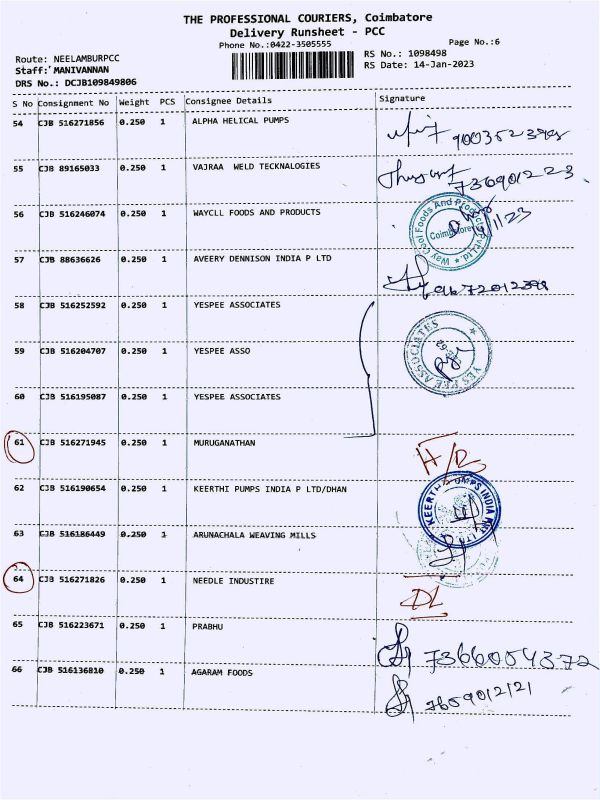 THE PROFESSIONAL COURIERS, Coimbatore
Delivery Runsheet - PCC
Phone No.:0422-3505555
Page No.:6
Route: NEELAMBURPCC
RS No.: 1098498
Staff: MANIVANNAN
RS Date: 14-Jan-2023
DRS No.: DCJB109849806
S No Consignment No Weight PCS Consignee Details Signature
54 CJB 516271856 0.250 1 ALPHA HELICAL PUMPS
55 CJB 89165033 0.250 1 VAJRAA WELD TECKNALOGIES
56 CJB 516246074 0.250 1 WAYCLL FOODS AND PRODUCTS
Way Cool Foods And Products Pvt Ltd. * Coimbatore
57 CJB 88636626 0.250 1 AVEERY DENNISON INDIA P LTD
58 CJB 516252592 0.250 1 YESPEE ASSOCIATES
59 CJB 516204707 0.250 1 YESPEE ASSO
YES PEE ASSOCIATES
60 CJB 516195087 0.250 1 YESPEE ASSOCIATES
61 CJB 516271945 0.250 1 MURUGANATHAN
62 CJB 516190654 0.250 1 KEERTHI PUMPS INDIA P LTD/DHAN
KEERTHI PUMPS INDIA PVT LTD
63 CJB 516186449 0.250 1 ARUNACHALA WEAVING MILLS
64 CJB 516271826 0.250 1 NEEDLE INDUSTIRE DL
65 CJB 516223671 0.250 1 PRABHU 7366054372
66 CJB 516136810 0.250 1 AGARAM FOODS